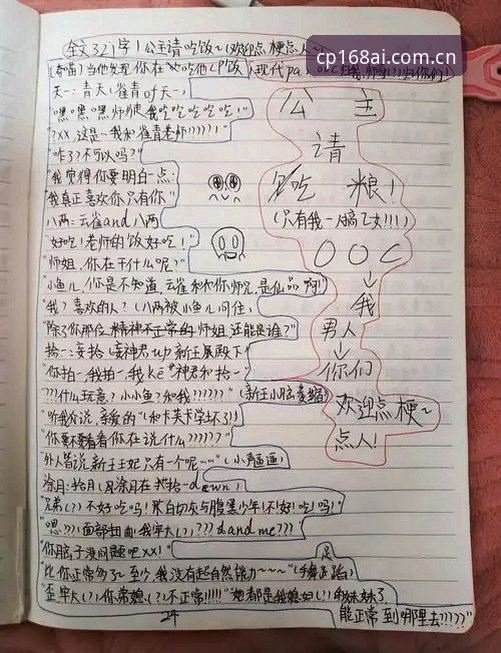 全文321字！公主请吃饭~(欢迎点梗点人~
cp168ai.com.cn
当他发现你在吃他CP饭(现代pa,
天一：青天(雀青叶天一)
"嘿嘿嘿师徒我吃吃吃吃吃！"
"?XX,这是~我和雀青老师?????！"
"咋了？不可以吗？"
"我觉得你要明白一点：
"我真正喜欢你只有你"
八两：云雀and八两
"好吃！老师的饭好吃！"
"师姐，你在干什么呢？"
"小鱼儿，你是不知道，云雀和你师兄，是仙品啊！"
"我？喜欢的人？(八两被小鱼儿问住，
"除了你那位精神不正常的师姐，还能是谁？"
拾一：妄拾(妄神君心)新王展殿下
"你拍一，我拍一，我ke神君和拾一"
"???什么玩意？小小鱼？和我??????"(新王小脑萎缩)
"听我分说，亲爱的"(和卡芙卡学坏了!)
"你要不要看看你在说什么??????"
"外人皆说，新王王妃只有一个呢~"
涂月：拾月(月涂月在拾一down)
"兄弟(?)不好吃吗！灰白切灰与腹黑少年！不!好!吃!吗!
"嗯???！面部扭曲！我牢大(!)???dandme???
"你脑子没问题吧XX！"
"比你正常多了~至少，我没有超自然能力~~~"(手舞足蹈)
"歪，牢大(!),你常媳(!)不正常!!!!!"她都是我媳妇(!)的妹妹了
能正常到哪里去?????"
24
公主
请
吃粮！
(只有我一人搞乙女!!!)
OOC
我
男人
你们
欢迎点梗~
点人！